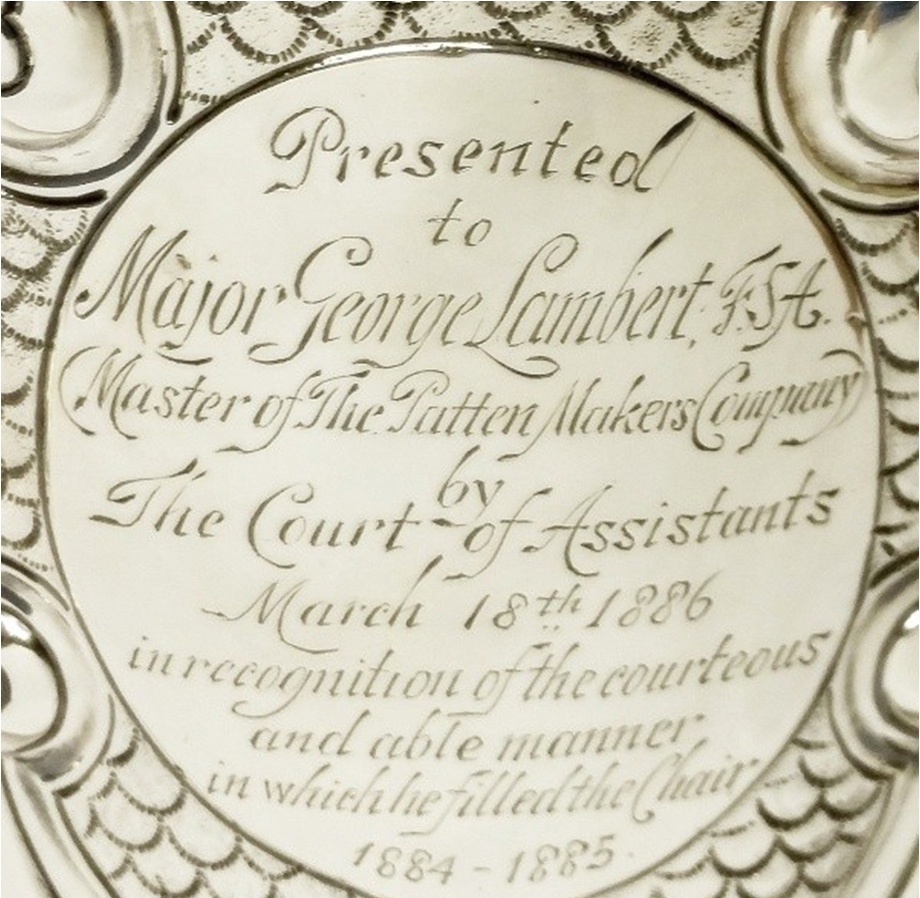 Presented
to
Major George Lambert, F.S.A.
(Master of The Patten Makers Company)
by
The Court of Assistants
March 18th 1886
in recognition of the courteous
and able manner
in which he filled the Chair
1884 - 1885.